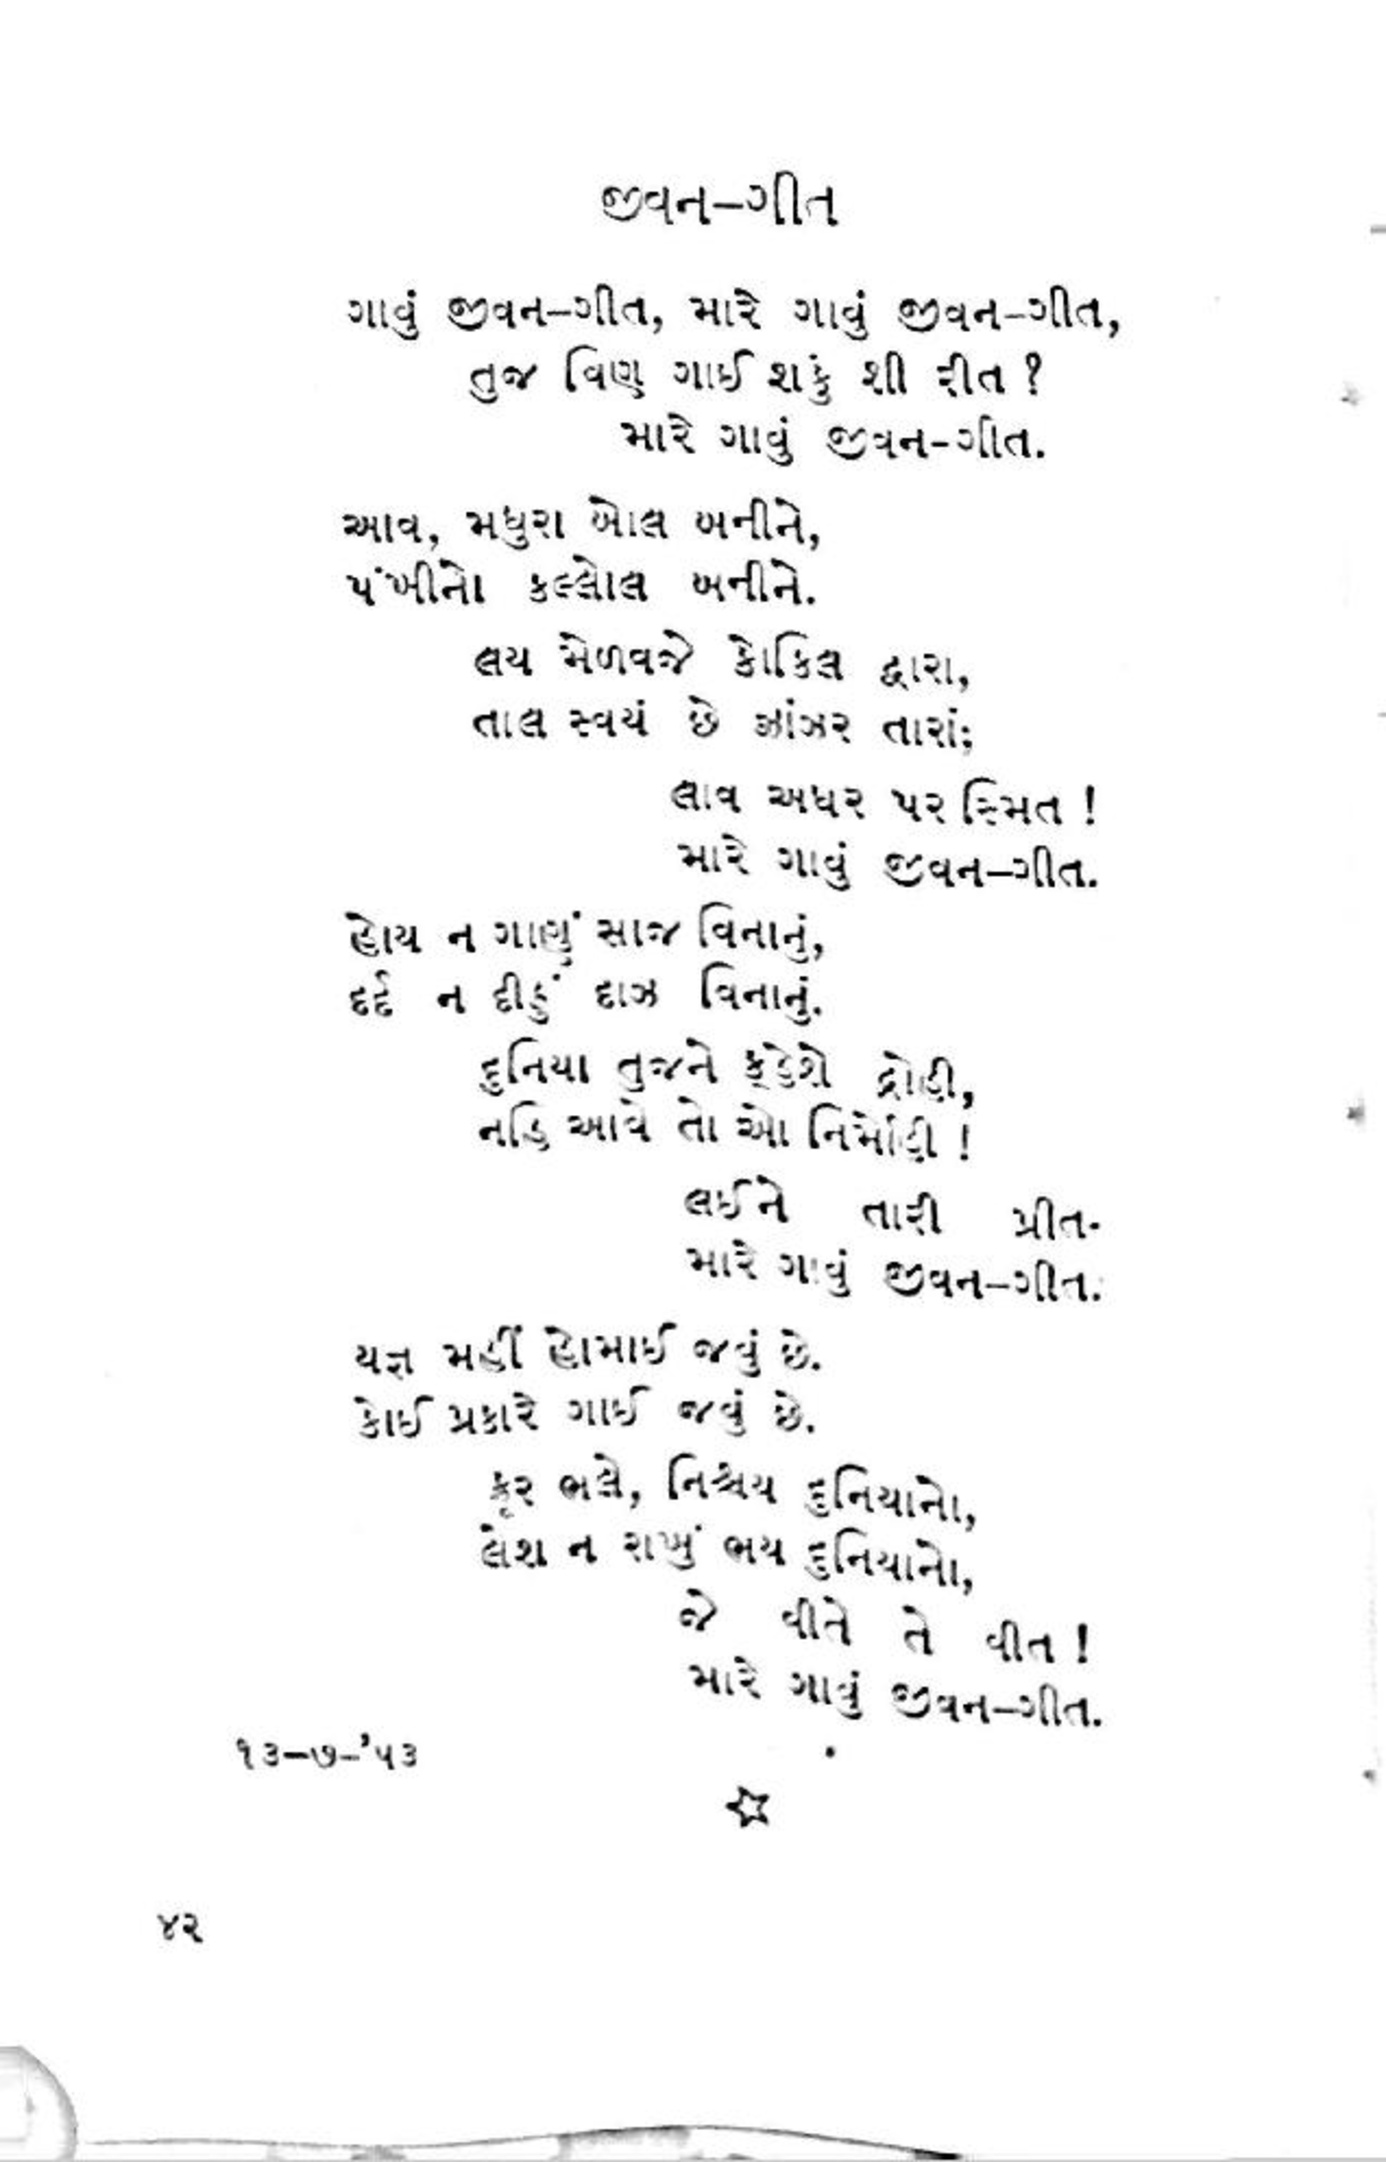 જીવન–ગીત
ગાવું જીવન–ગીત, મારે ગાવું જીવન–ગીત,
તુજ વિણ ગાઈ શકું શી રીત ?
મારે ગાવું જીવન-ગીત.
આવ, મધુરા બોલ બનીને,
પંખીનો કલ્લોલ બનીને.
લય મેળવજે કોકિલ દ્વારા,
તાલ સ્વયં છે ઝાંઝર તારાં;
લાવ અધર પર સ્મિત !
મારે ગાવું જીવન–ગીત.
હોય ન ગાણું સાજ વિનાનું,
દર્દ ન દીઠું દાઝ વિનાનું.
દુનિયા તુજને ક્હેશે દ્રોહી,
નહિ આવે તો ઓ નિર્મોહી !
લઈને તારી પ્રીત-
મારે ગાવું જીવન–ગીત.
યજ્ઞ મહીં હોમાઈ જવું છે.
કોઈ પ્રકારે ગાઈ જવું છે.
ક્રૂર ભલે, નિશ્ચય દુનિયાનો,
લેશ ન રાખું ભય દુનિયાનો,
જે વીતે તે વીત !
મારે ગાવું જીવન–ગીત.
૧૩–૭–'૫૩
૪૨